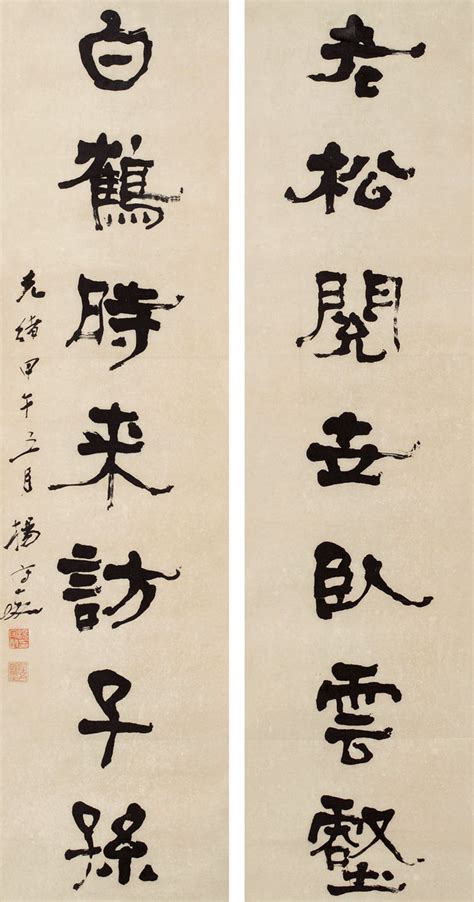 老松閲世臥雲壑
白鶴時来訪子孫
光緒甲午三月 楊守敬